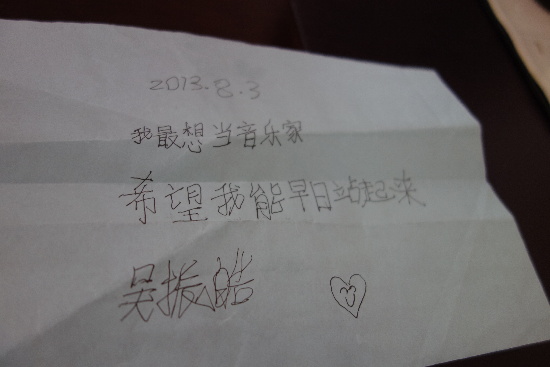 2013.8.3
我最想当音乐家
希望我能早日站起来
吴振皓